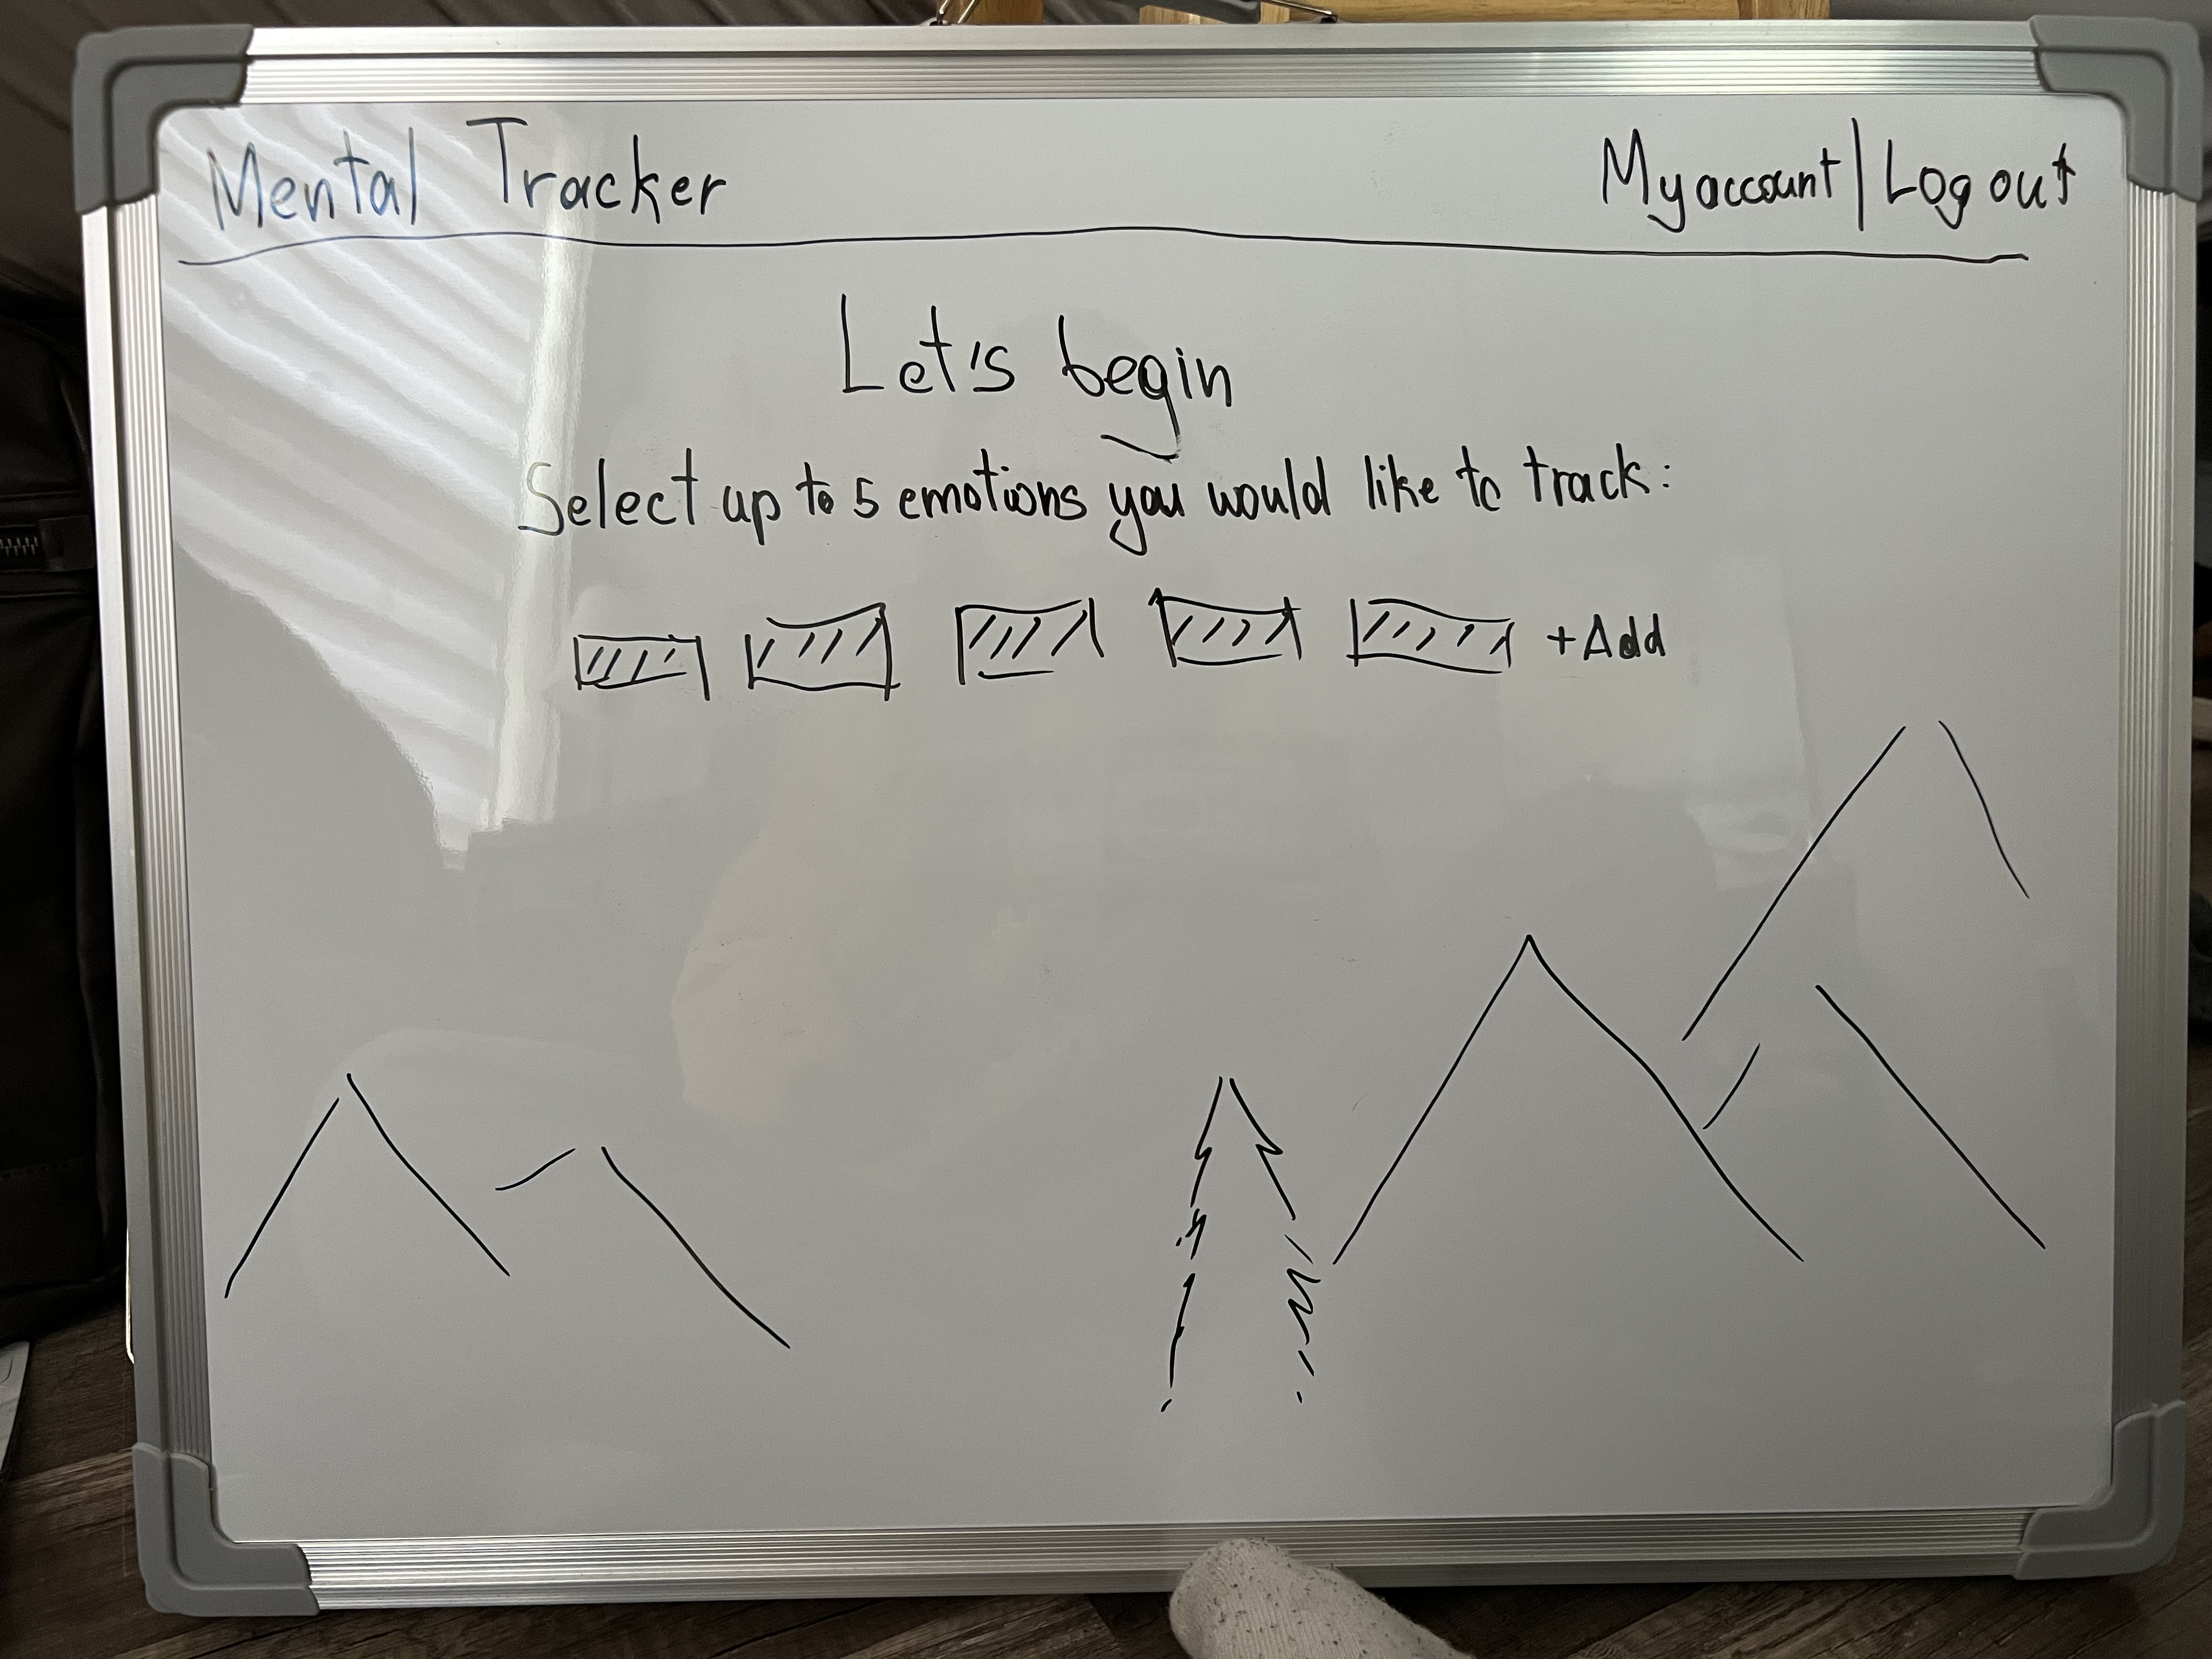 Mental Tracker My account | Log out
Let's begin
Select up to 5 emotions you would like to track:
+Add